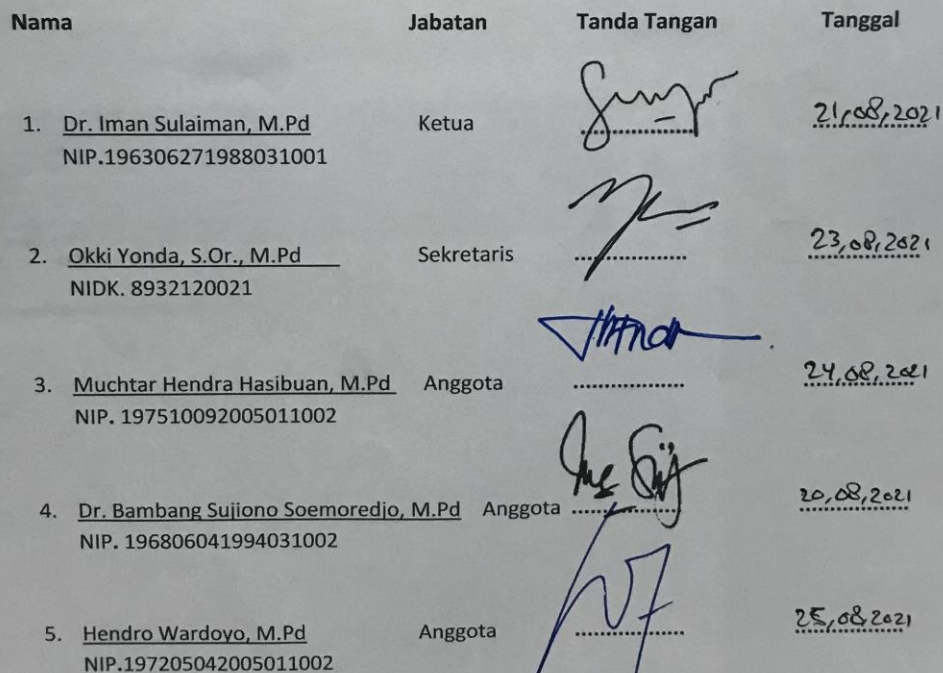 Nama Jabatan Tanda Tangan Tanggal
1. Dr. Iman Sulaiman, M.Pd Ketua .................. 21,08,2021
NIP.196306271988031001
2. Okki Yonda, S.Or., M.Pd Sekretaris .................. 23,08,2021
NIDK. 8932120021
3. Muchtar Hendra Hasibuan, M.Pd Anggota .................. 24,08,2021
NIP. 197510092005011002
4. Dr. Bambang Sujiono Soemoredjo, M.Pd Anggota .................. 20,08,2021
NIP. 196806041994031002
5. Hendro Wardoyo, M.Pd Anggota .................. 25,08,2021
NIP.197205042005011002